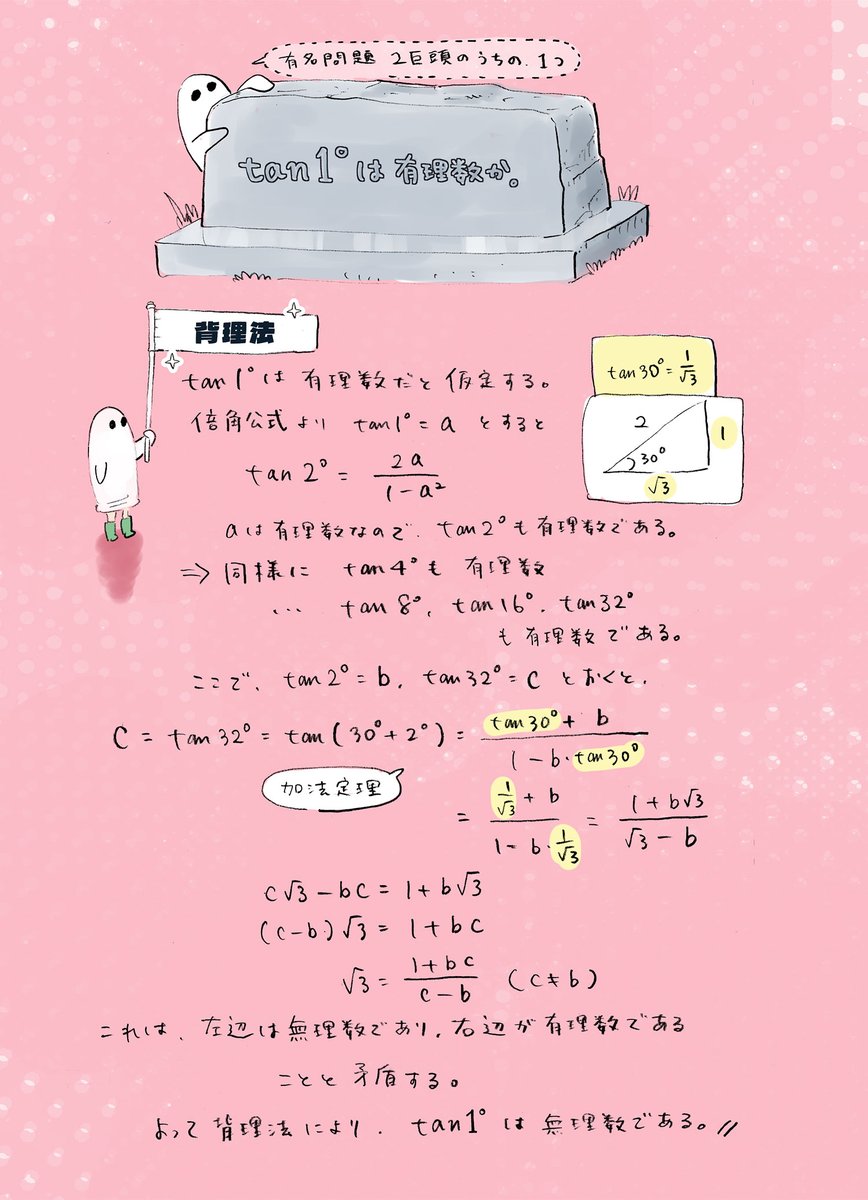 有名問題 2巨頭のうちの、1つ
tan1°は有理数か。
背理法
tan1°は 有理数だと仮定する。
倍角公式より tan1°=a とすると
tan2°= 2a/(1-a²)
aは有理数なので、tan2°も有理数である。
⇒ 同様に tan4°も 有理数
… tan8°, tan16°, tan32°
も有理数である。
tan30°=1/√3
2
1
30°
√3
ここで、tan2°=b, tan32°=c とおくと、
C = tan32° = tan(30°+2°) = (tan30°+b)/(1-b·tan30°)
加法定理
= (1/√3+b)/(1-b·1/√3) = (1+b√3)/(√3-b)
c√3-bc=1+b√3
(c-b)√3=1+bc
√3=(1+bc)/(c-b) (c≠b)
これは、左辺は無理数であり、右辺が有理数である
ことと矛盾する。
よって背理法により、tan1°は無理数である。//